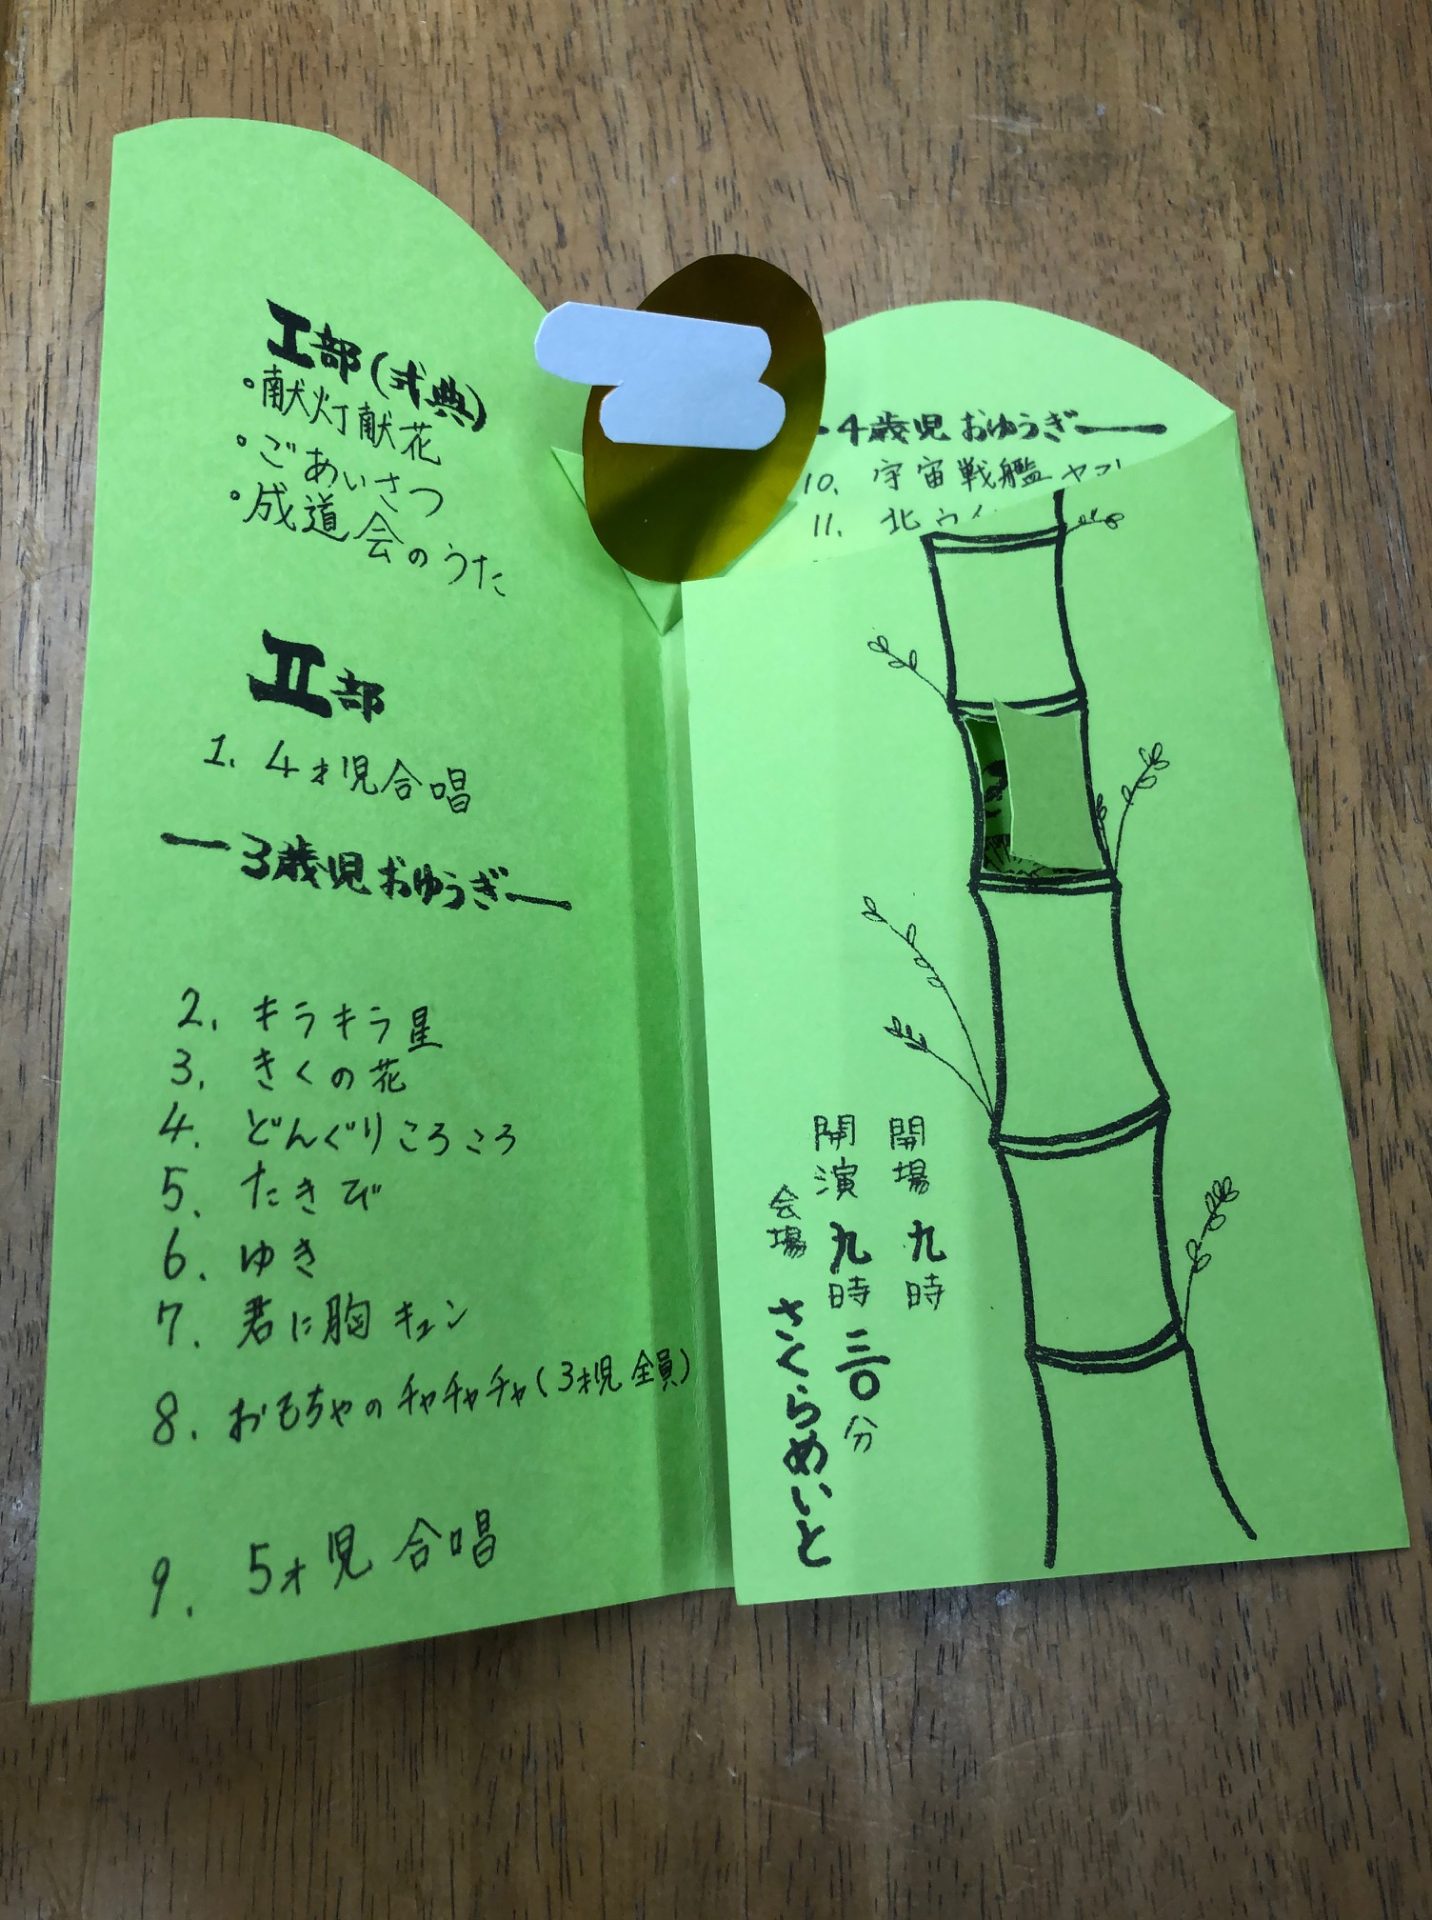 I部(式典)
・献灯献花
・ごあいさつ
・成道会のうた
II部
1. 4才児合唱
—3歳児おゆうぎ—
2. キラキラ星
3. きくの花
4. どんぐりころころ
5. たきび
6. ゆき
7. 君に胸キュン
8. おもちゃのチャチャチャ(3才児全員)
9. 5才児 合唱
・4歳児おゆうぎ—
10. 宇宙戦艦ヤマ
11. 北
開場 九時
開演 九時三〇分
会場 さくらめいと